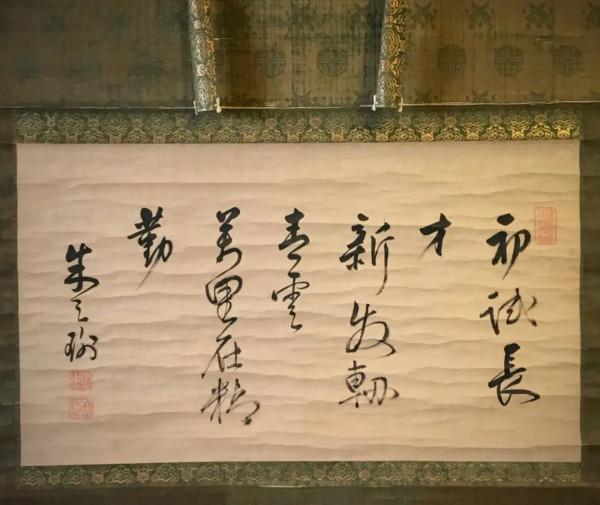 初試長
才
新发軔
青雲
萬里在精
勤
朱之瑜